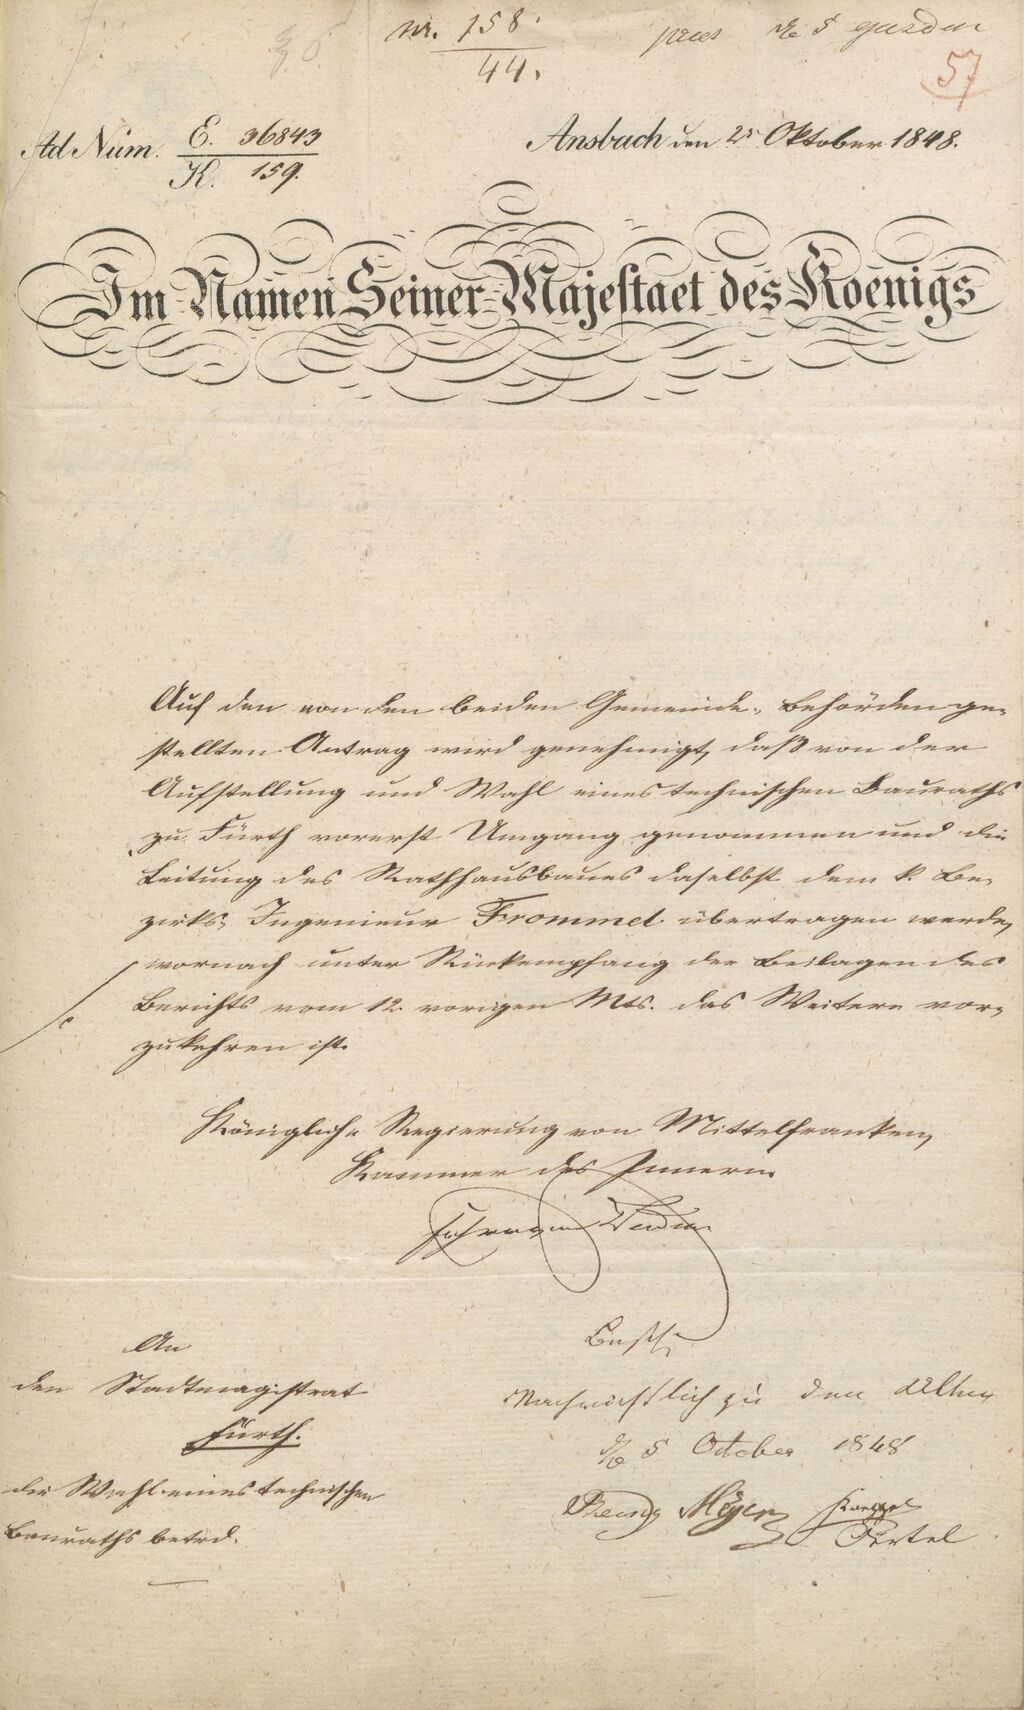 nr. 158.
44.
57
Ad Num. E. 36843
K. 159.
Ansbach den Oktober 1848.
Im Namen Seiner Majestaet des Koenigs
Auf den von den beiden Gemeinde-Behörden ge-
stellten Antrag wird genehmigt, daß von der
Aufstellung und Wahl eines technischen Bauraths
zu Fürth vorerst Umgang genommen und die
Leitung des Rathhausbaues daselbst dem k. Be-
zirks-Ingenieur Frommel übertragen werde,
wornach unter Rückempfang der Beilagen des
Berichts vom 12. vorigen Mts. das Weitere vor-
zukehren ist.
Königliche Regierung von Mittelfranken,
Kammer des Innern.
An
den Stadtmagistrat
Fürth.
der Wahl eines technischen
Bauraths betrd.
Beschl.
zu den Akten
5 October 1848
Meyer